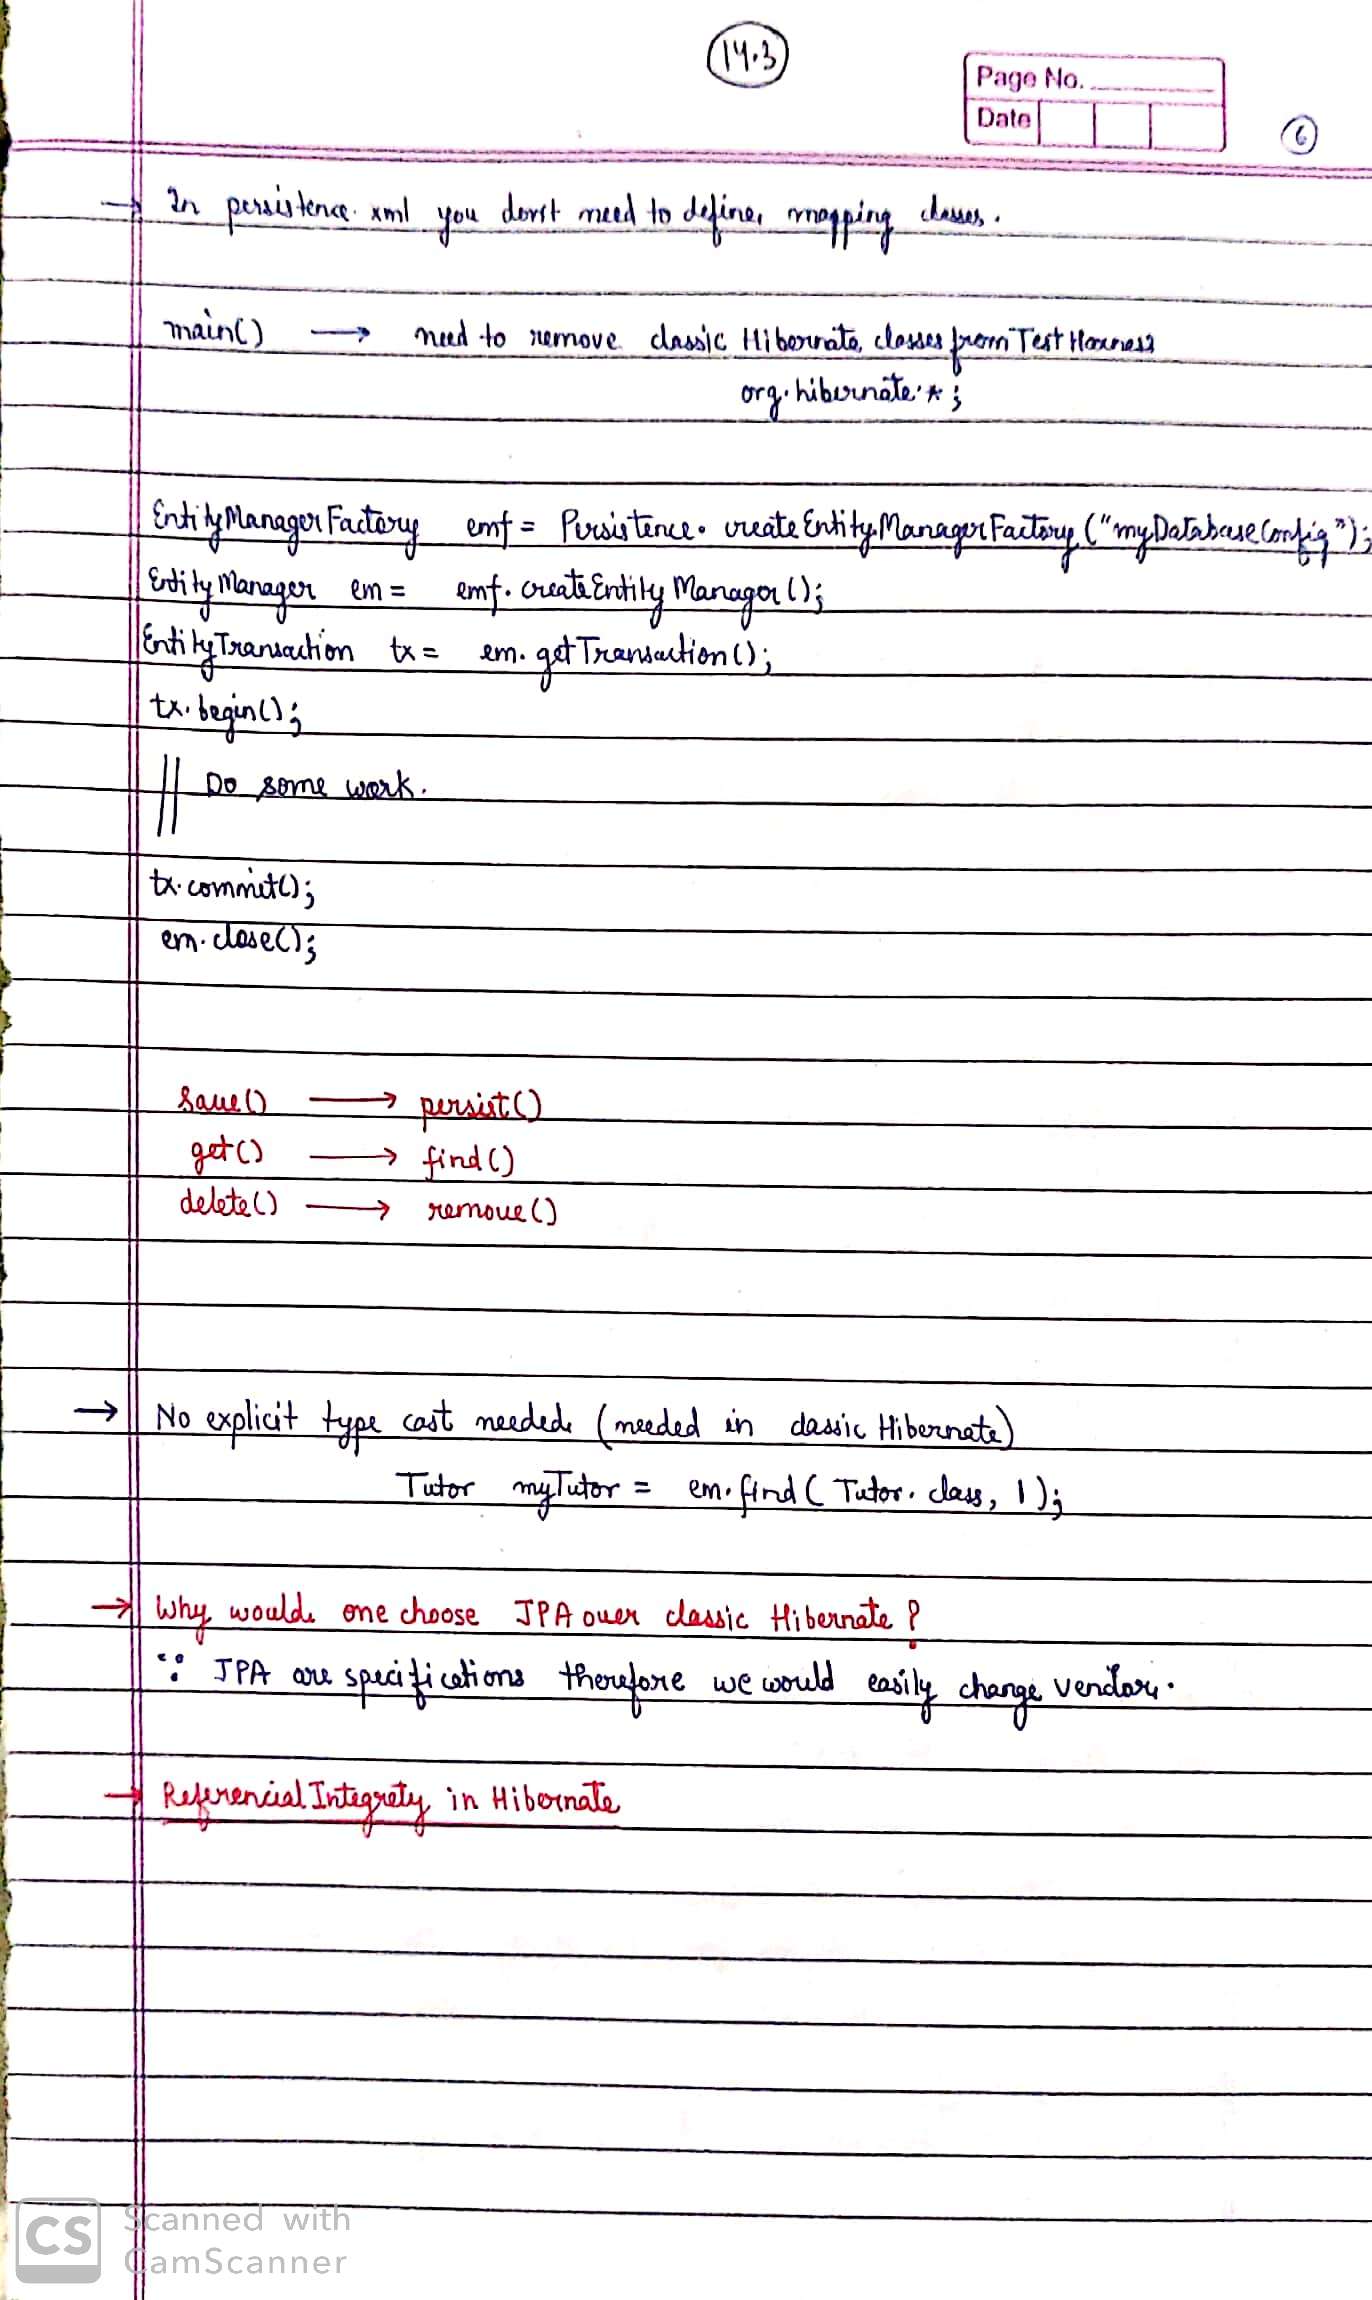 14.3
Page No.
Date
6
→ In persistence.xml you don't need to define mapping classes.
main() → need to remove classic Hibernate classes from Test Harness
org.hibernate.*;
EntityManagerFactory emf = Persistence.createEntityManagerFactory("myDatabaseConfig");
EntityManager em = emf.createEntityManager();
EntityTransaction tx = em.getTransaction();
tx.begin();
// Do some work.
tx.commit();
em.close();
save() → persist()
get() → find()
delete() → remove()
→ No explicit type cast needed (needed in classic Hibernate)
Tutor myTutor = em.find(Tutor.class, 1);
→ Why would one choose JPA over classic Hibernate?
∵ JPA are specifications therefore we would easily change vendors.
→ Referencial Integrety in Hibernate
CS Scanned with
CamScanner